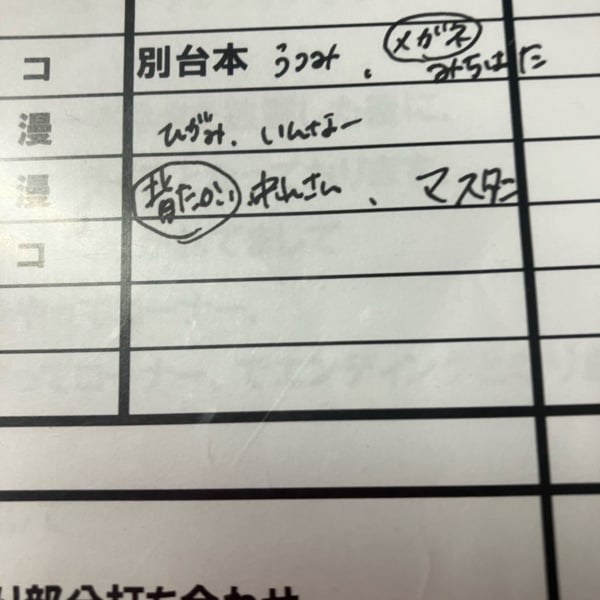 メガネ
コ 別台本 うつみ、 みちはた
漫 ひがみ、いんなー
漫 背たかい さん、マスタニ
コ
り部分打ち合わせ